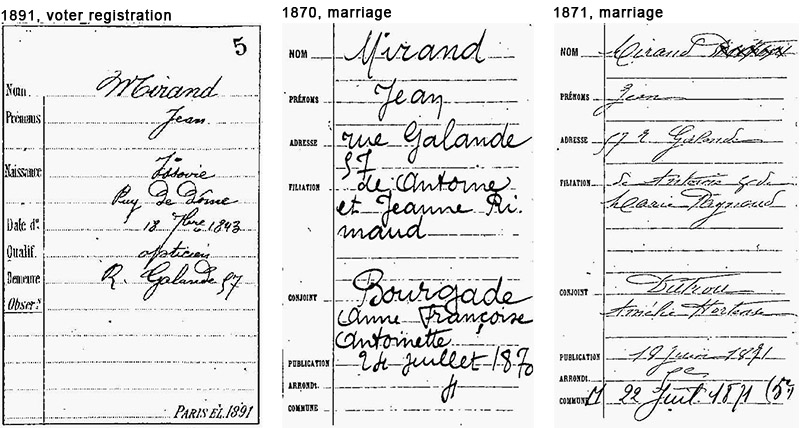 1891, voter registration
5
Nom Mirand
Prénoms Jean
Naissance Issoire
Puy De Dôme
Date d° 18 7bre 1843
Qualif. opticien
Demeure R. Galande 57
Obser.
PARIS EL. 1891
1870, marriage
NOM Mirand
PRÉNOMS Jean
ADRESSE rue Galande
57
FILIATION de Antoine
et Jeanne Ri.
maud
CONJOINT Bourgade
Anne Françoise
Antoinette
PUBLICATION 24 juillet 1870
ARRONDt.
COMMUNE
1871, marriage
NOM Mirand
PRÉNOMS Jean
ADRESSE 57 R Galande
FILIATION de Antoine & de
Marie Raynaud
CONJOINT Dutrou
Amélie Hortense
PUBLICATION 18 Juin 1871
ARRONDt. 5e
COMMUNE M 22 Juil. 1871 (5e)